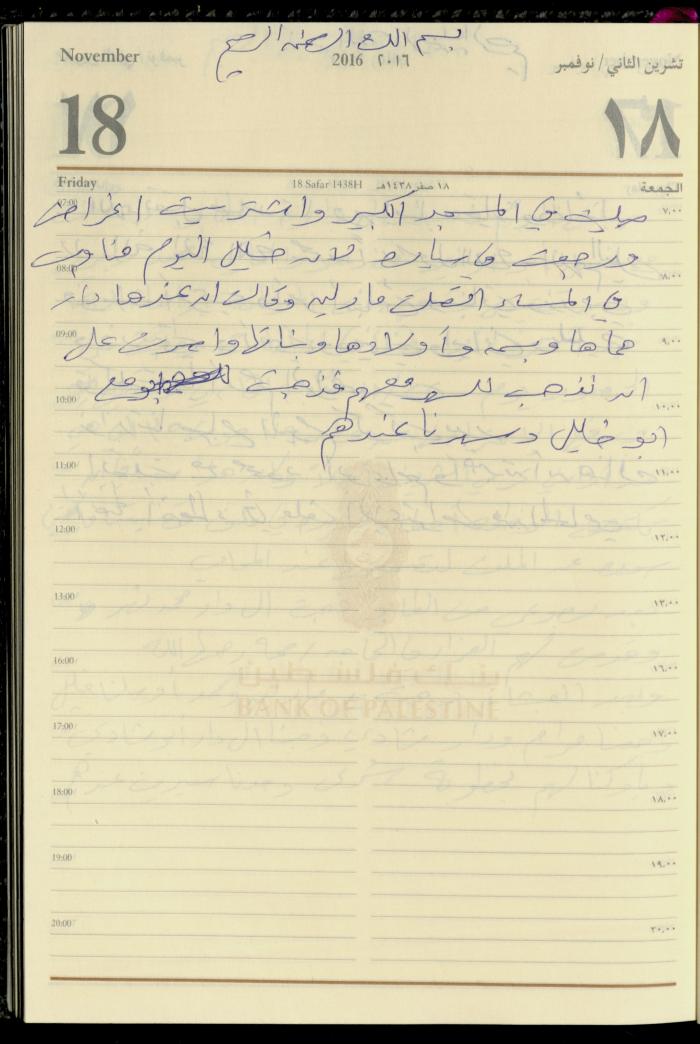 بسم الله الرحمن الرحيم
November
2016 ٢٠١٦
تشرين الثاني/ نوفمبر
18
١٨
Friday
18 Safar 1438H ١٨ صفر ١٤٣٨هـ
الجمعة
07:00 صليت في المسجد الكبير واشتريت اغراض ٧,٠٠
ورجعت في سيارة لان خليل اليوم
08:00 ٨,٠٠
في المساء اتصلت مادلين وقالت ان عندها دار
09:00 حماها وبسمه وأولادها وبناتها علي ٩,٠٠
ان نذهب للسهر معهم فذهبت مع
10:00 ١٠,٠٠
ابو خليل وسهرنا عندهم
11:00 ١١,٠٠
12:00 ١٢,٠٠
13:00 ١٣,٠٠
16:00 ١٦,٠٠
بنك فلسطين
BANK OF PALESTINE
17:00 ١٧,٠٠
18:00 ١٨,٠٠
19:00 ١٩,٠٠
20:00 ٢٠,٠٠